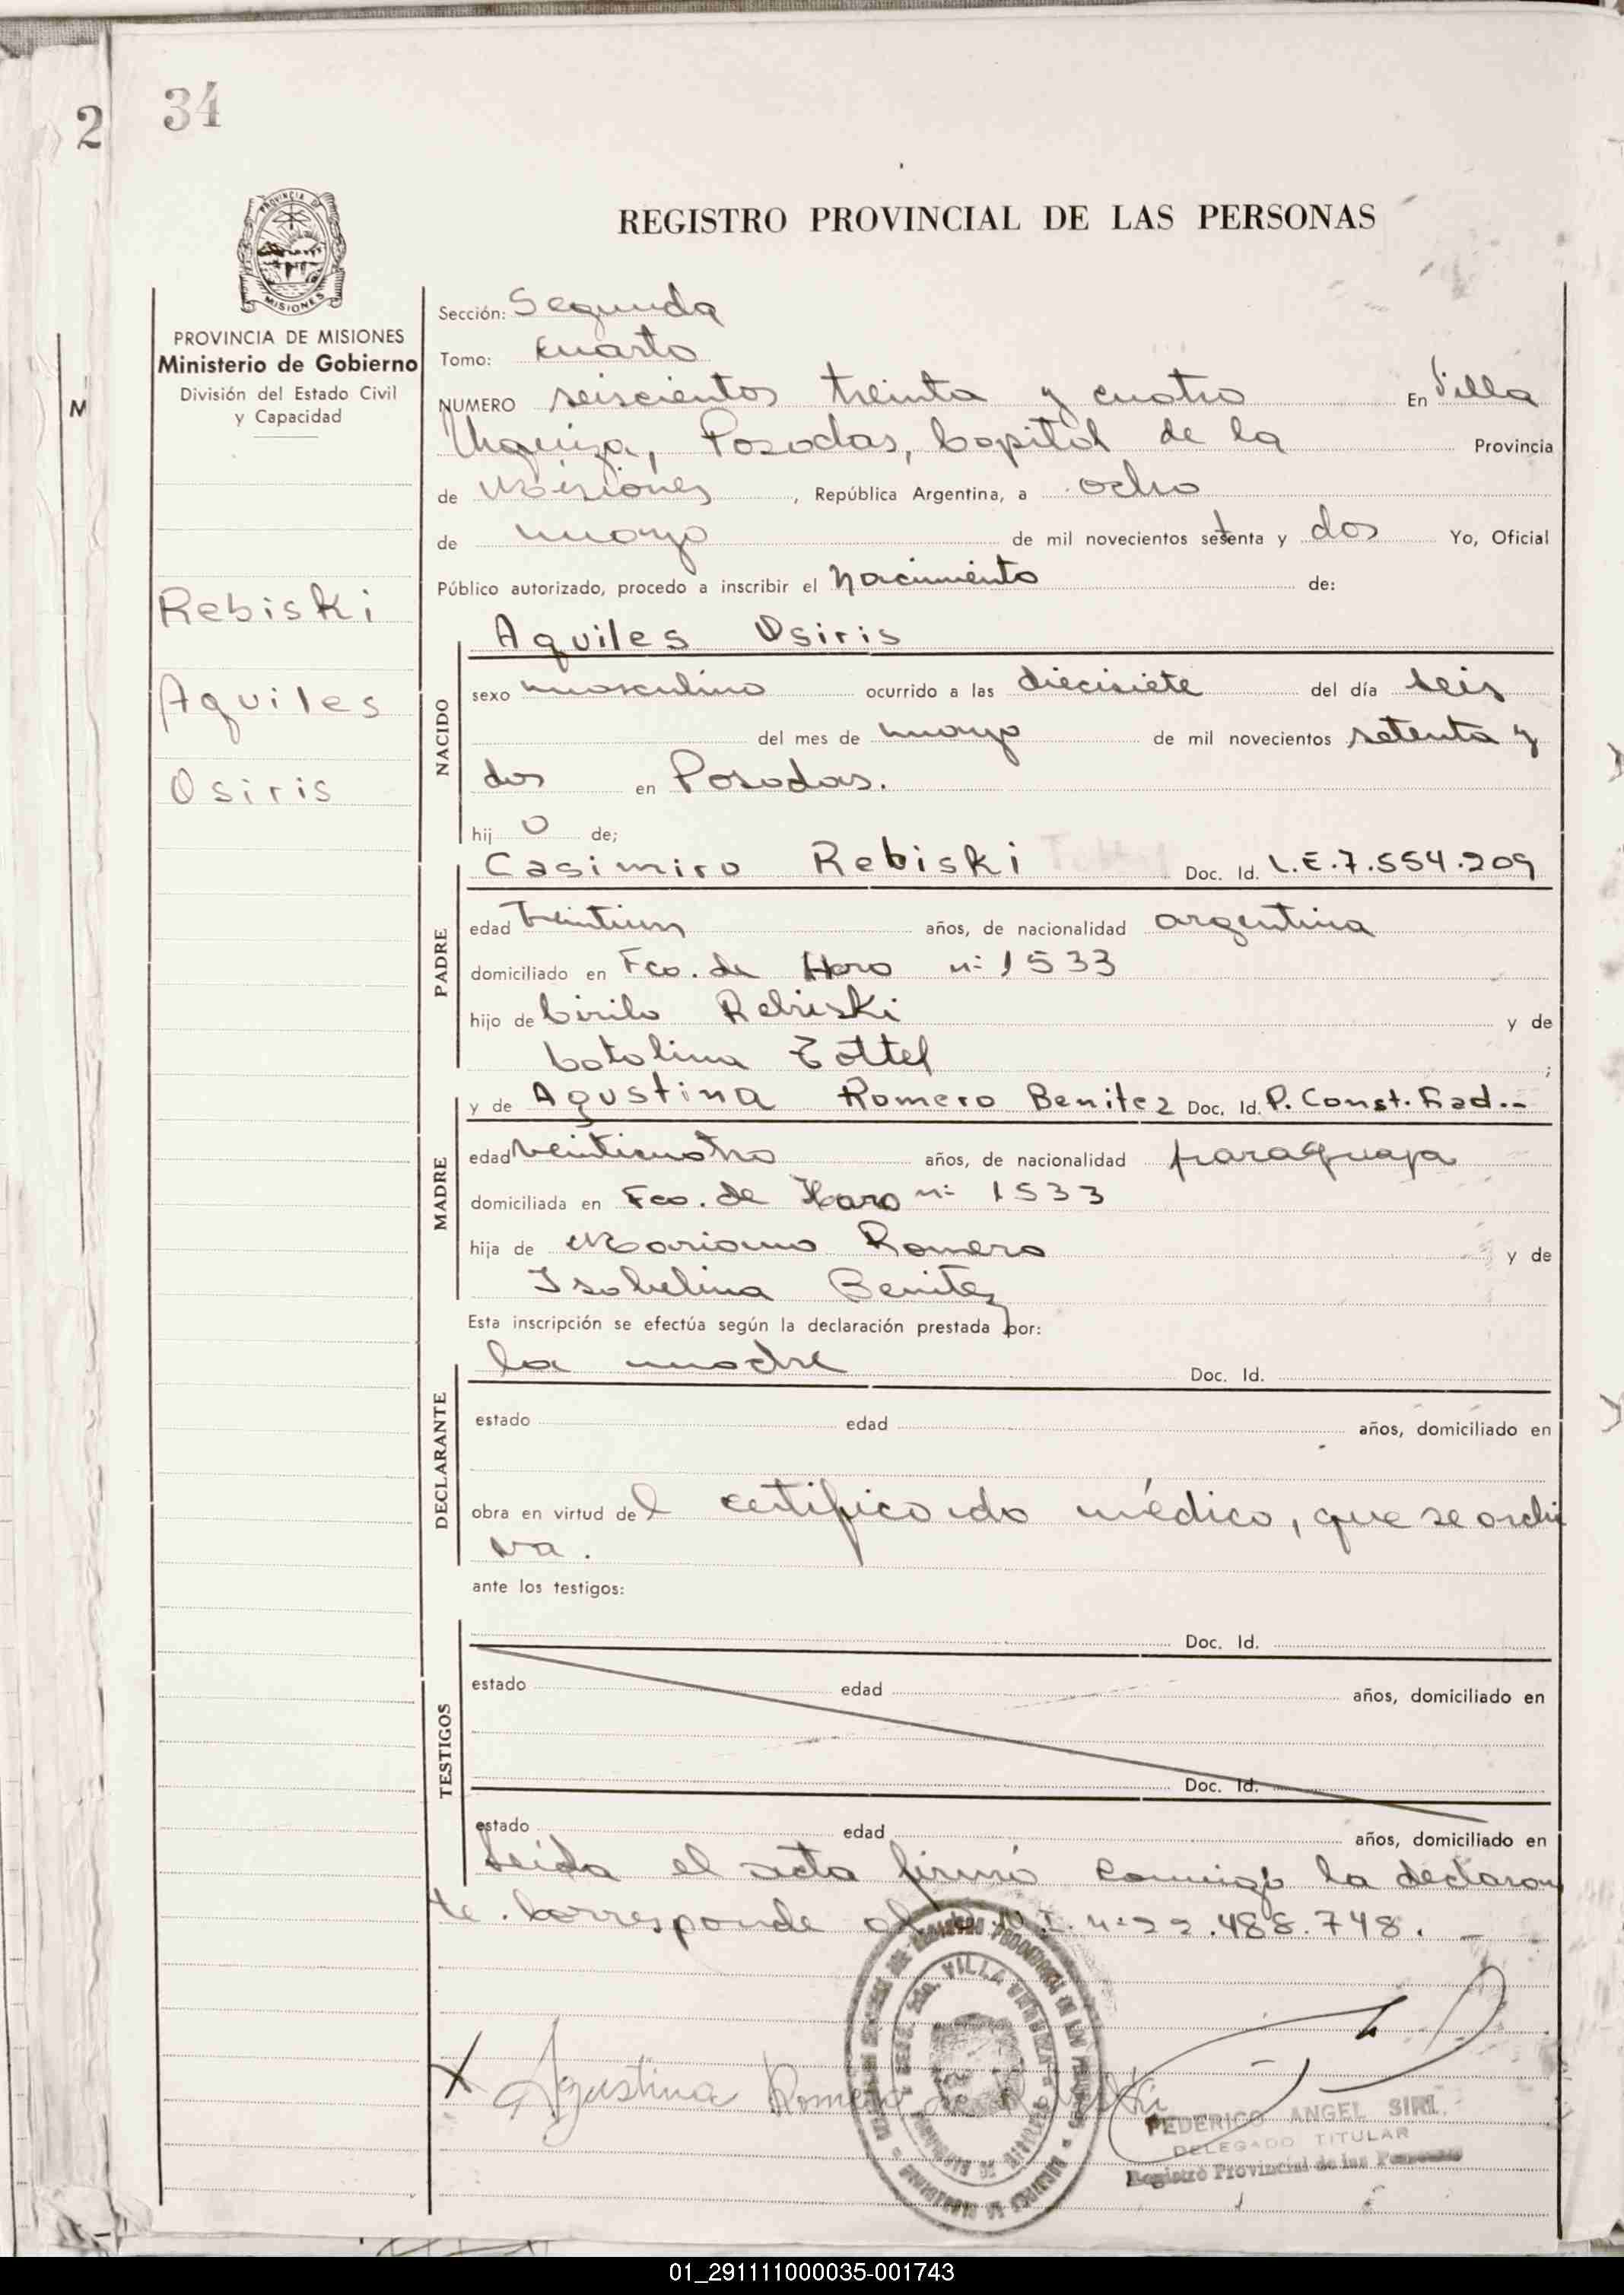 34
2
PROVINCIA DE
MISIONES
REGISTRO PROVINCIAL DE LAS PERSONAS
PROVINCIA DE MISIONES
Ministerio de Gobierno
División del Estado Civil
y Capacidad
M
Rebiski
Aquiles
Osiris
Sección: Segunda
Tomo: Cuarto
NUMERO seiscientos treinta y cuatro En Villa
Urquiza, Posadas, Capital de la Provincia
de Misiones, República Argentina, a ocho
de mayo de mil novecientos setenta y dos Yo, Oficial
Público autorizado, procedo a inscribir el Nacimiento de:
Aquiles Osiris
NACIDO
sexo masculino ocurrido a las diecisiete del día seis
del mes de mayo de mil novecientos setenta y
dos en Posadas.
hij o de;
Casimiro Rebiski Doc. Id. L.E.7.554.209
PADRE
edad treintiun años, de nacionalidad argentina
domiciliado en Fco. de Haro nº 1533
hijo de Cirilo Rebiski y de
Catalina Tottel;
y de Agustina Romero Benitez Doc. Id. P. Const. Rad.--
MADRE
edad veinticuatro años, de nacionalidad paraguaya
domiciliada en Fco. de Haro nº 1533
hija de Mariano Romero y de
Isabelina Benitez
Esta inscripción se efectúa según la declaración prestada por:
la madre Doc. Id.
DECLARANTE
estado edad años, domiciliado en
obra en virtud del certificado médico, que se archi
va.
ante los testigos:
Doc. Id.
TESTIGOS
estado edad años, domiciliado en
Doc. Id.
estado edad años, domiciliado en
Leida el acta firmó conmigo la declaran
te. Corresponde al D.N.I. nº 22.488.748. -
VILLA URQUIZA
X Agustina Romero de Rebiski
FEDERICO ANGEL SIRI
DELEGADO TITULAR
Registro Provincial de las Personas
01_291111000035-001743